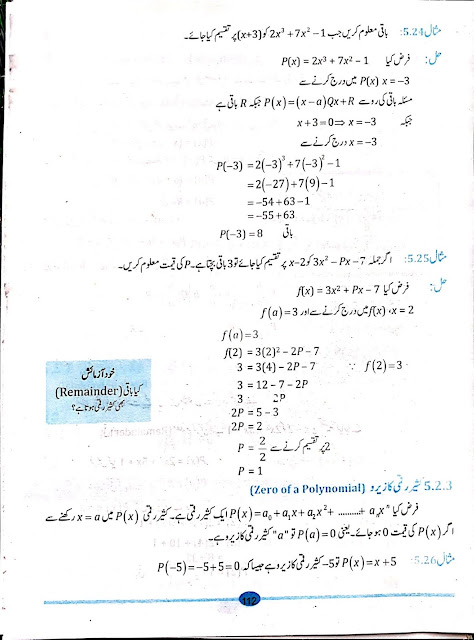 مثال 5.24: باقی معلوم کریں جب 2x³ + 7x² − 1 کو (x+3) پر تقسیم کیا جائے۔
حل: فرض کیا P(x) = 2x³ + 7x² − 1
P(x) x = −3 میں درج کرنے سے
مسئلہ باقی کی رو سے P(x) = (x−a)Qx+R جبکہ R باقی ہے
جبکہ x + 3 = 0 ⇒ x = −3
x = −3 درج کرنے سے
P(−3) = 2(−3)³ + 7(−3)² − 1
= 2(−27) + 7(9) − 1
= −54 + 63 − 1
= −55 + 63
باقی P(−3) = 8
مثال 5.25: اگر جملہ 3x² − Px − 7 کو x−2 پر تقسیم کیا جائے تو 3 باقی بچتا ہے۔ P کی قیمت معلوم کریں۔
حل: فرض کیا f(x) = 3x² + Px − 7
f(x) ، x = 2 میں درج کرنے سے اور f(a) = 3
f(a) = 3
f(2) = 3(2)² − 2P − 7
3 = 3(4) − 2P − 7 ∵ f(2) = 3
3 = 12 − 7 − 2P
3 2P
2P = 5 − 3
2P = 2
P = 2/2 2 پر تقسیم کرنے سے
P = 1
خود آزمائش
کیا باقی (Remainder)
بھی کثیر رقمی ہوتا ہے؟
5.2.3 کثیر رقمی کا زیرو (Zero of a Polynomial)
فرض کیا P(x) = a₀ + a₁x + a₂x² + .......... + aₙxⁿ ایک کثیر رقمی ہے۔ کثیر رقمی P(x) میں x = a رکھنے سے
اگر P(x) کی قیمت 0 ہو جائے۔ یعنی P(a) = 0 تو "a" کثیر رقمی کا زیرو ہے۔
مثال 5.26: P(x) = x + 5 تو 5− کثیر رقمی کا زیرو ہے جیسا کہ P(−5) = −5 + 5 = 0
112